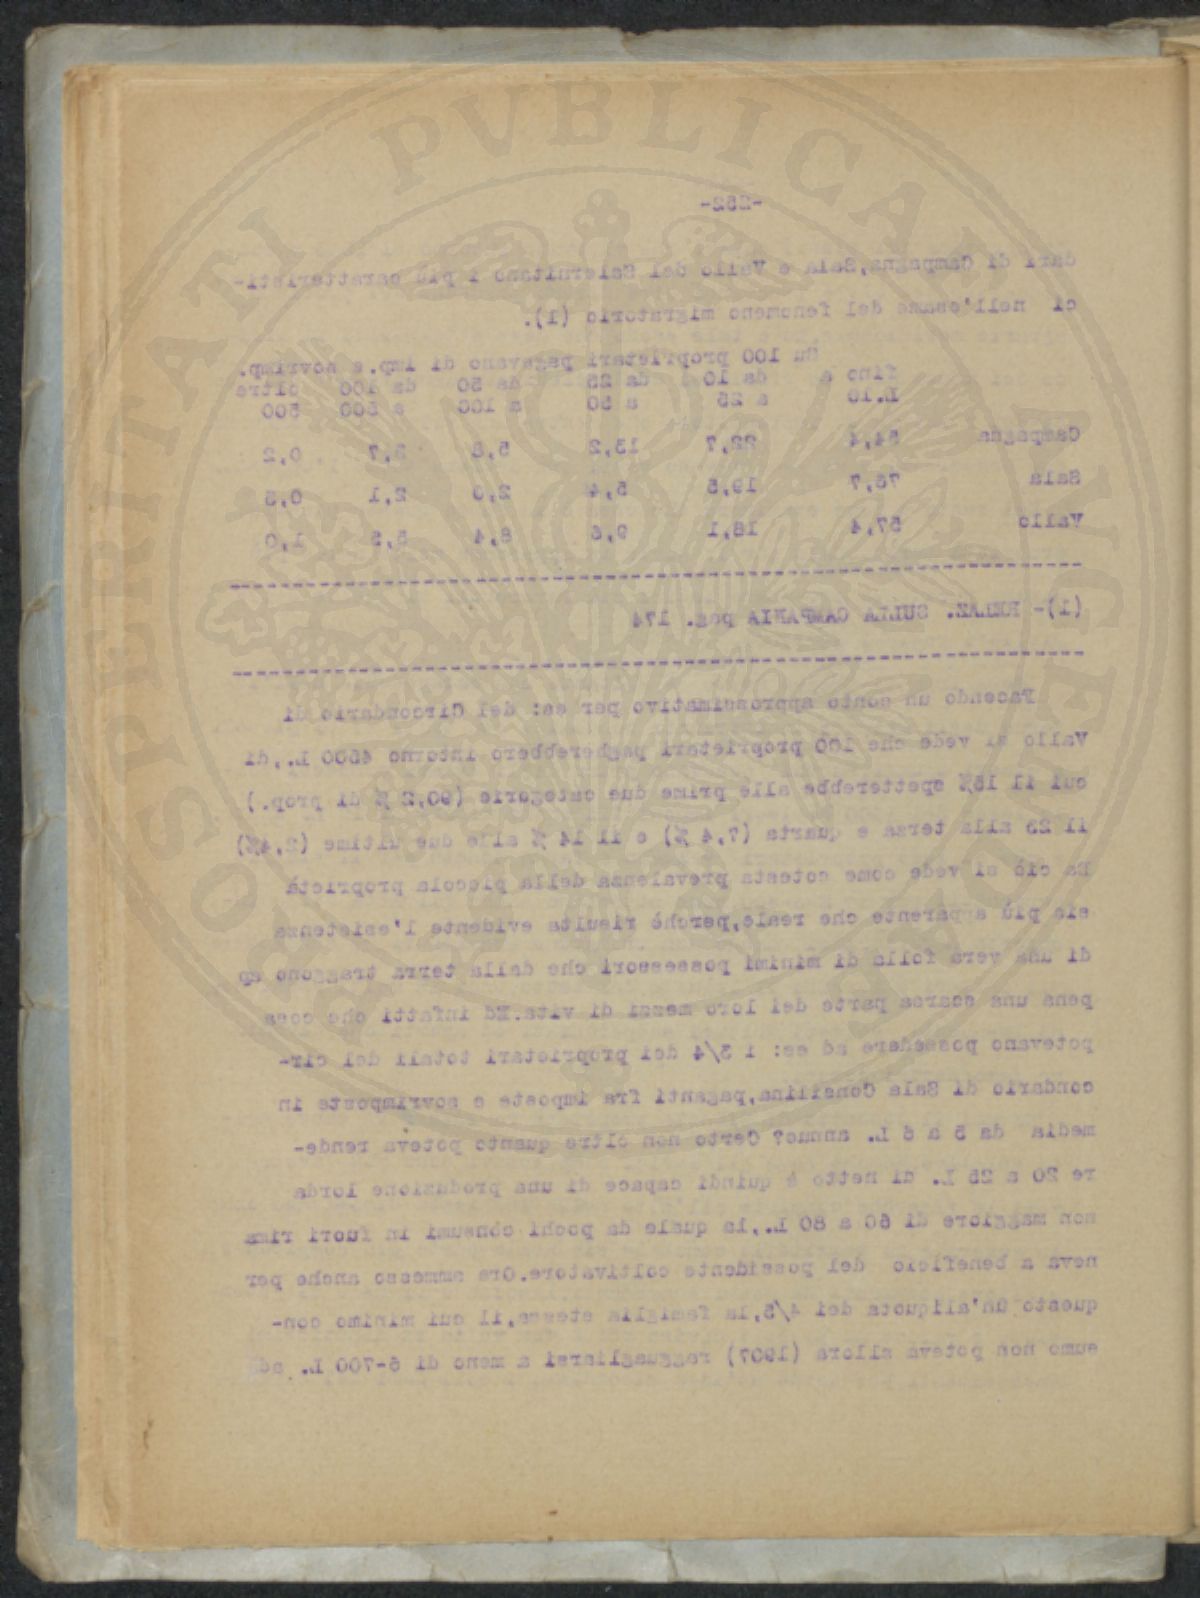 -252-
dari di Campagna,Sala e Vallo del Salernitano i più caratteristi-
ci nell'esame del fenomeno migratorio (1).
Su 100 proprietari pagavano di imp.e sovrimp.
fino a da 10 da 25 da 50 da 100 oltre
L.10 a 25 a 50 a 100 a 500 500
Campagna 54,4 22,7 13,2 5,8 3,7 0,2
Sala 70,7 19,5 5,4 2,0 2,1 0,3
Vallo 57,4 18,1 9,6 8,4 5,5 1,0
(1)- RELAZ. SULLA CAMPANIA pag. 174
Facendo un conto approssimativo per es: del Circondario di
Vallo si vede che 100 proprietari pagherebbero intorno 4500 L.,di
cui il 15% spetterebbe alle prime due categorie (90,2 % di prop.)
il 25 alla terza e quarta (7,4 %) e il 14 % alle due ultime (2,4%)
Da ciò si vede come cotesta prevalenza della piccola proprietà
sia più apparente che reale,perchè risulta evidente l'esistenza
di una vera folla di minimi possessori che dalla terra traggono ap
pena una scarsa parte dei loro mezzi di vita.Ed infatti che cosa
potevano possedere ad es: i 3/4 dei proprietari totali del cir-
condario di Sala Consilina,paganti fra imposte e sovrimposte in
media da 5 a 6 L. annue? Certo non oltre quanto poteva rende-
re 20 a 25 L. di netto è quindi capace di una produzione lorda
non maggiore di 60 a 80 L.,la quale da pochi consumi in fuori rima
neva a beneficio del possidente coltivatore.Ora ammesso anche per
questo un'aliquota dei 4/5,la famiglia stessa,il cui minimo con-
sumo non poteva allora (1907) ragguagliarsi a meno di 6-700 L.
PROSPERITATI PVBLICAE